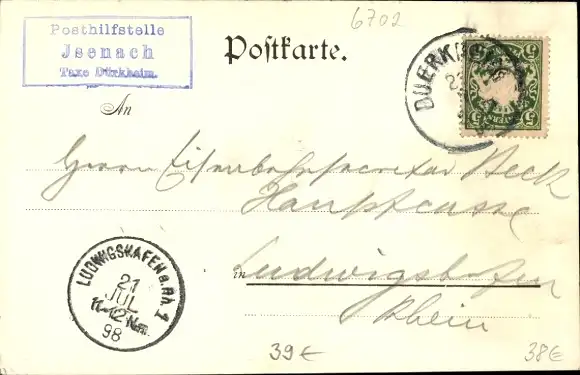 6702
Posthilfstelle
Jsenach
Taxe Dürkheim.
Postkarte.
DUERKH
5 5
5 5
An
Herrn Eisenbahnsecretär Beck
Hauptcasse
in Ludwigshafen
Rhein
LUDWIGSHAFEN a. Rh. 1
21
JUL
11-12 Nm.
98
39€
38€